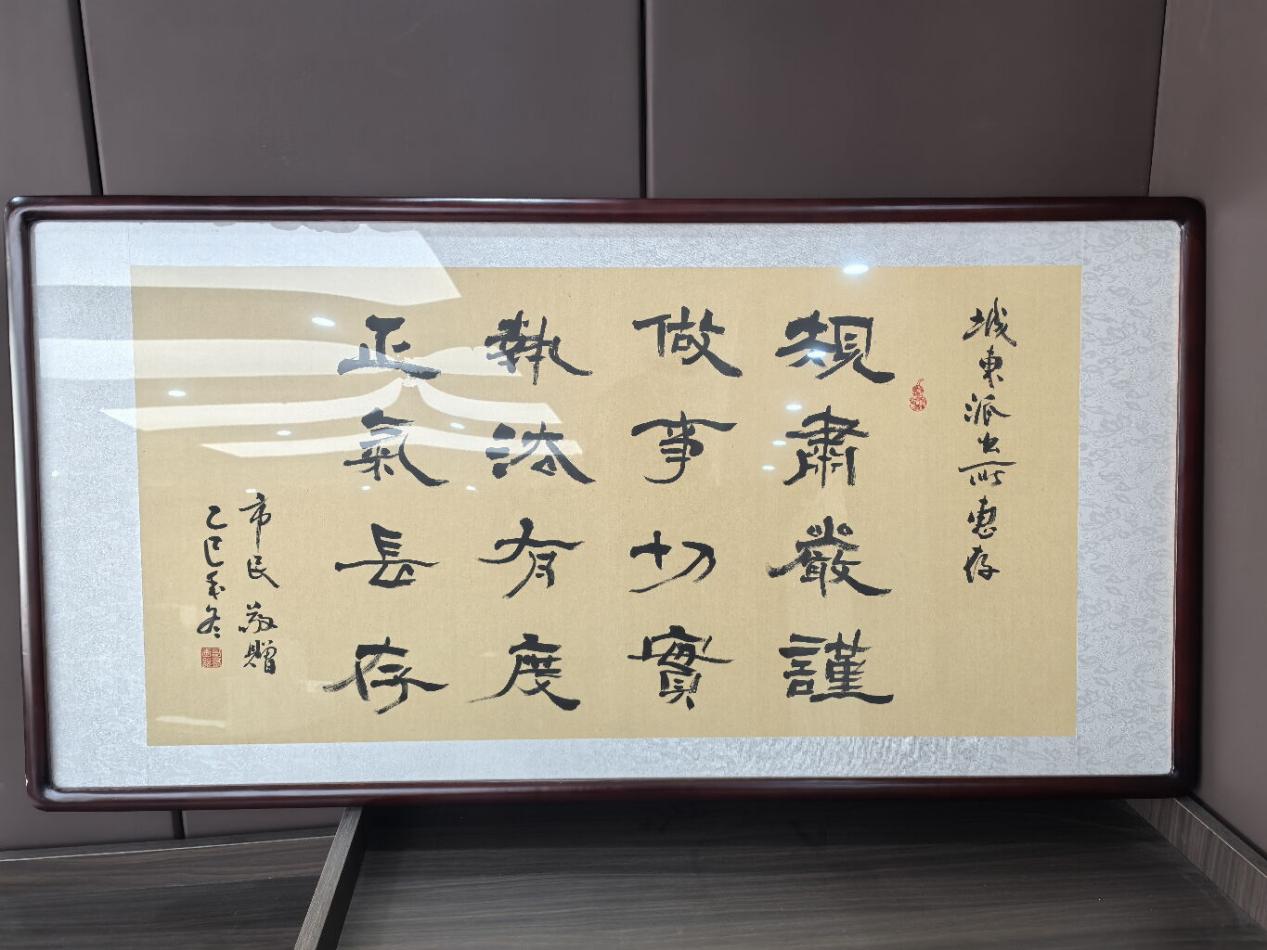 城東派出所惠存
規肅嚴謹
做事切實
執法有度
正氣長存
市民敬贈
乙巳年冬